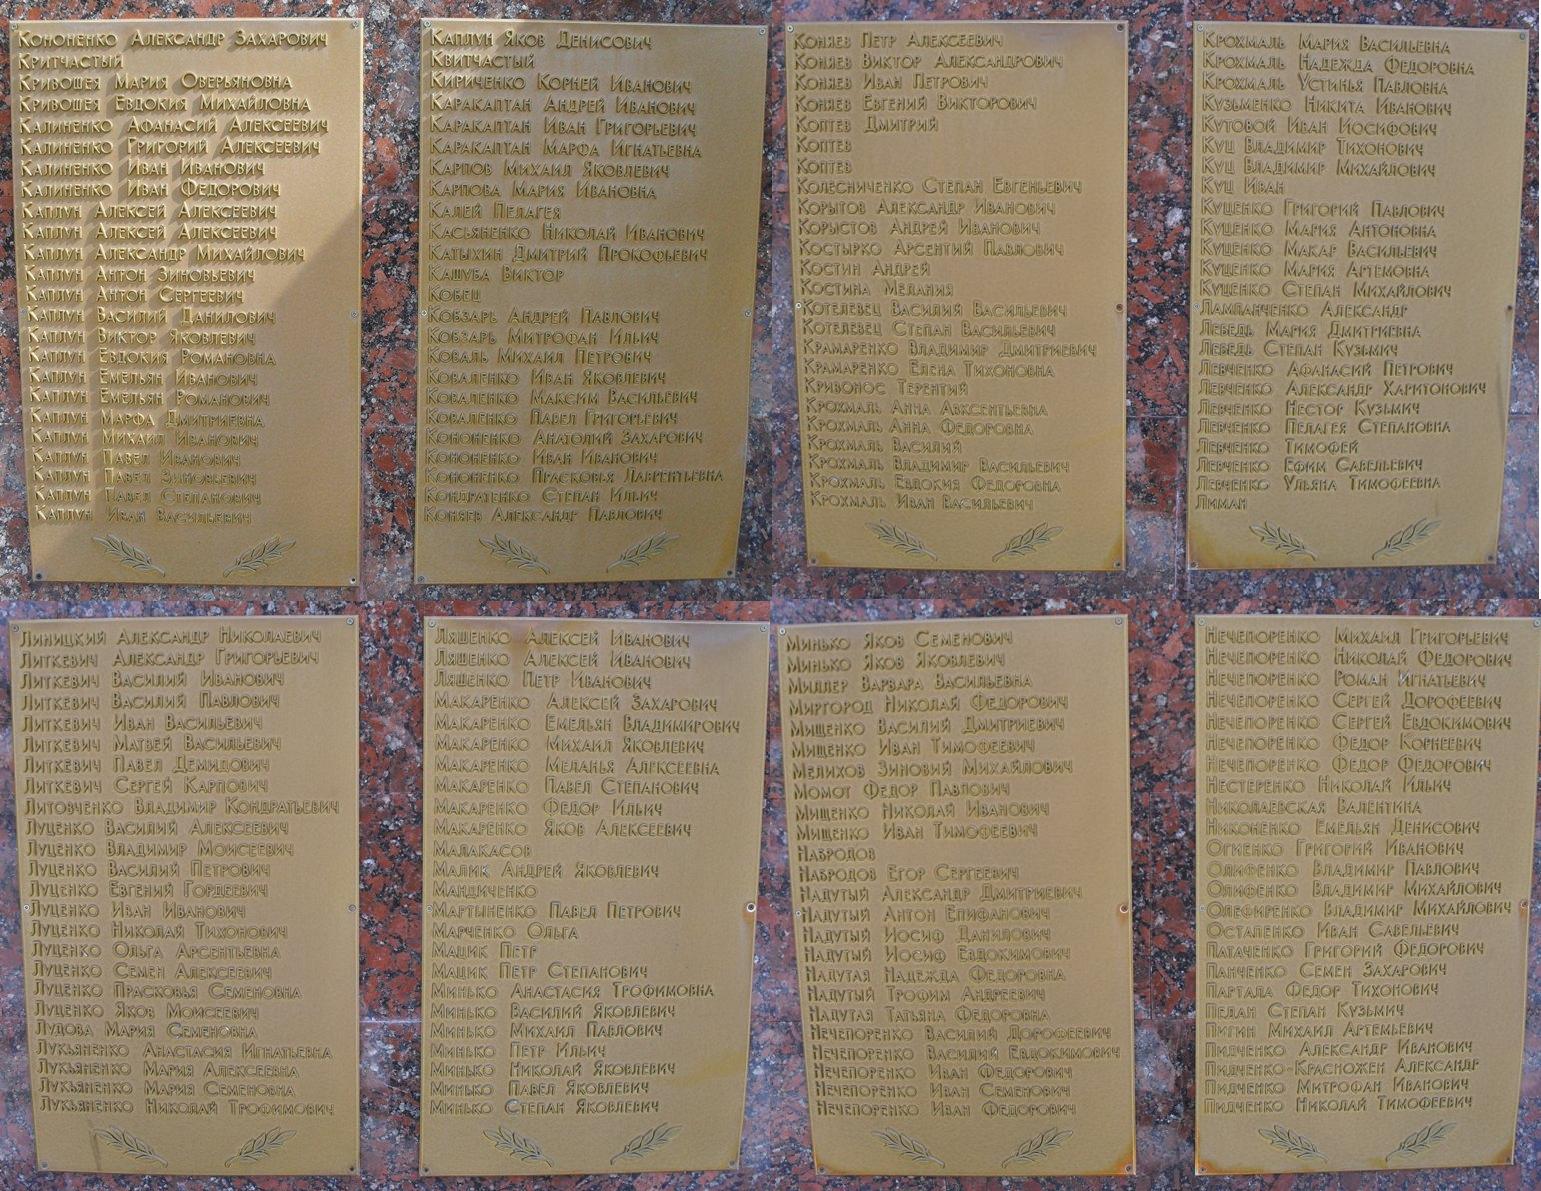 Кононенко Александр Захарович
Критчастый
Кривошея Мария Оверьяновна
Кривошея Евдокия Михайловна
Калиненко Афанасий Алексеевич
Калиненко Григорий Алексеевич
Калиненко Иван Иванович
Калиненко Иван Федорович
Каплун Алексей Алексеевич
Каплун Алексей Алексеевич
Каплун Александр Михайлович
Каплун Антон Зиновьевич
Каплун Антон Сергеевич
Каплун Василий Данилович
Каплун Виктор Яковлевич
Каплун Евдокия Романовна
Каплун Емельян Иванович
Каплун Емельян Романович
Каплун Марфа Дмитриевна
Каплун Михаил Иванович
Каплун Павел Иванович
Каплун Павел Зиновьевич
Каплун Павел Степанович
Каплун Иван Васильевич
Каплун Яков Денисович
Квитчастый
Кириченко Корней Иванович
Каракаптан Андрей Иванович
Каракаптан Иван Григорьевич
Каракаптан Марфа Игнатьевна
Карпов Михаил Яковлевич
Карпова Мария Ивановна
Калей Пелагея
Касьяненко Николай Иванович
Катыхин Дмитрий Прокофьевич
Кашуба Виктор
Кобец
Кобзарь Андрей Павлович
Кобзарь Митрофан Ильич
Коваль Михаил Петрович
Коваленко Иван Яковлевич
Коваленко Максим Васильевич
Коваленко Павел Григорьевич
Кононенко Анатолий Захарович
Кононенко Иван Иванович
Кононенко Прасковья Лаврентьевна
Кондратенко Степан Ильич
Коняев Александр Павлович
Коняев Петр Алексеевич
Коняев Виктор Александрович
Коняев Иван Петрович
Коняев Евгений Викторович
Коптев Дмитрий
Коптев
Коптев
Колесниченко Степан Евгеньевич
Корытов Александр Иванович
Корыстов Андрей Иванович
Костырко Арсентий Павлович
Костин Андрей
Костина Мелания
Котелевец Василий Васильевич
Котелевец Степан Васильевич
Крамаренко Владимир Дмитриевич
Крамаренко Елена Тихоновна
Кривонос Терентий
Крохмаль Анна Авксентьевна
Крохмаль Анна Федоровна
Крохмаль Василий
Крохмаль Владимир Васильевич
Крохмаль Евдокия Федоровна
Крохмаль Иван Васильевич
Крохмаль Мария Васильевна
Крохмаль Надежда Федоровна
Крохмаль Устинья Павловна
Кузьменко Никита Иванович
Кутовой Иван Иосифович
Куц Владимир Тихонович
Куц Владимир Михайлович
Куц Иван
Куценко Григорий Павлович
Куценко Мария Антоновна
Куценко Макар Васильевич
Куценко Мария Артемовна
Куценко Степан Михайлович
Лампанченко Александр
Лебедь Мария Дмитриевна
Лебедь Степан Кузьмич
Левченко Афанасий Петрович
Левченко Александр Харитонович
Левченко Нестор Кузьмич
Левченко Пелагея Степановна
Левченко Тимофей
Левченко Ефим Савельевич
Левченко Ульяна Тимофеевна
Лиман
Линицкий Александр Николаевич
Литкевич Александр Григорьевич
Литкевич Василий Иванович
Литкевич Василий Павлович
Литкевич Иван Васильевич
Литкевич Матвей Васильевич
Литкевич Павел Демидович
Литкевич Сергей Карпович
Литовченко Владимир Кондратьевич
Луценко Василий Алексеевич
Луценко Владимир Моисеевич
Луценко Василий Петрович
Луценко Евгений Гордеевич
Луценко Иван Иванович
Луценко Николай Тихонович
Луценко Ольга Арсентьевна
Луценко Семен Алексеевич
Луценко Прасковья Семеновна
Луценко Яков Моисеевич
Лудова Мария Семеновна
Лукьяненко Анастасия Игнатьевна
Лукьяненко Мария Алексеевна
Лукьяненко Мария Семеновна
Лукьяненко Николай Трофимович
Ляшенко Алексей Иванович
Ляшенко Алексей Иванович
Ляшенко Петр Иванович
Макаренко Алексей Захарович
Макаренко Емельян Владимирович
Макаренко Михаил Яковлевич
Макаренко Меланья Алексеевна
Макаренко Павел Степанович
Макаренко Федор Ильич
Макаренко Яков Алексеевич
Малакасов
Малик Андрей Яковлевич
Мандиченко
Мартыненко Павел Петрович
Марченко Ольга
Мацик Петр
Мацик Петр Степанович
Минько Анастасия Трофимовна
Минько Василий Яковлевич
Минько Михаил Павлович
Минько Петр Ильич
Минько Николай Яковлевич
Минько Павел Яковлевич
Минько Степан Яковлевич
Минько Яков Семенович
Минько Яков Яковлевич
Миллер Варвара Васильевна
Миргород Николай Федорович
Мищенко Василий Дмитриевич
Мищенко Иван Тимофеевич
Мелихов Зиновий Михайлович
Момот Федор Павлович
Мищенко Николай Иванович
Мищенко Иван Тимофеевич
Набродов
Набродов Егор Сергеевич
Надутый Александр Дмитриевич
Надутый Антон Епифанович
Надутый Иосиф Данилович
Надутый Иосиф Евдокимович
Надутая Надежда Федоровна
Надутый Трофим Андреевич
Надутая Татьяна Федоровна
Нечепоренко Василий Дорофеевич
Нечепоренко Василий Евдокимович
Нечепоренко Иван Федорович
Нечепоренко Иван Семенович
Нечепоренко Иван Федорович
Нечепоренко Михаил Григорьевич
Нечепоренко Николай Федорович
Нечепоренко Роман Игнатьевич
Нечепоренко Сергей Дорофеевич
Нечепоренко Сергей Евдокимович
Нечепоренко Федор Корнеевич
Нечепоренко Федор Федорович
Нестеренко Николай Ильич
Николаевская Валентина
Никоненко Емельян Денисович
Огиенко Григорий Иванович
Олифенко Владимир Павлович
Олифенко Владимир Михайлович
Олефиренко Владимир Михайлович
Остапенко Иван Савельевич
Патаченко Григорий Федорович
Панченко Семен Захарович
Партала Федор Тихонович
Педан Степан Кузьмич
Пигин Михаил Артемьевич
Пидченко Александр Иванович
Пидченко-Красножен Александр
Пидченко Митрофан Иванович
Пидченко Николай Тимофеевич